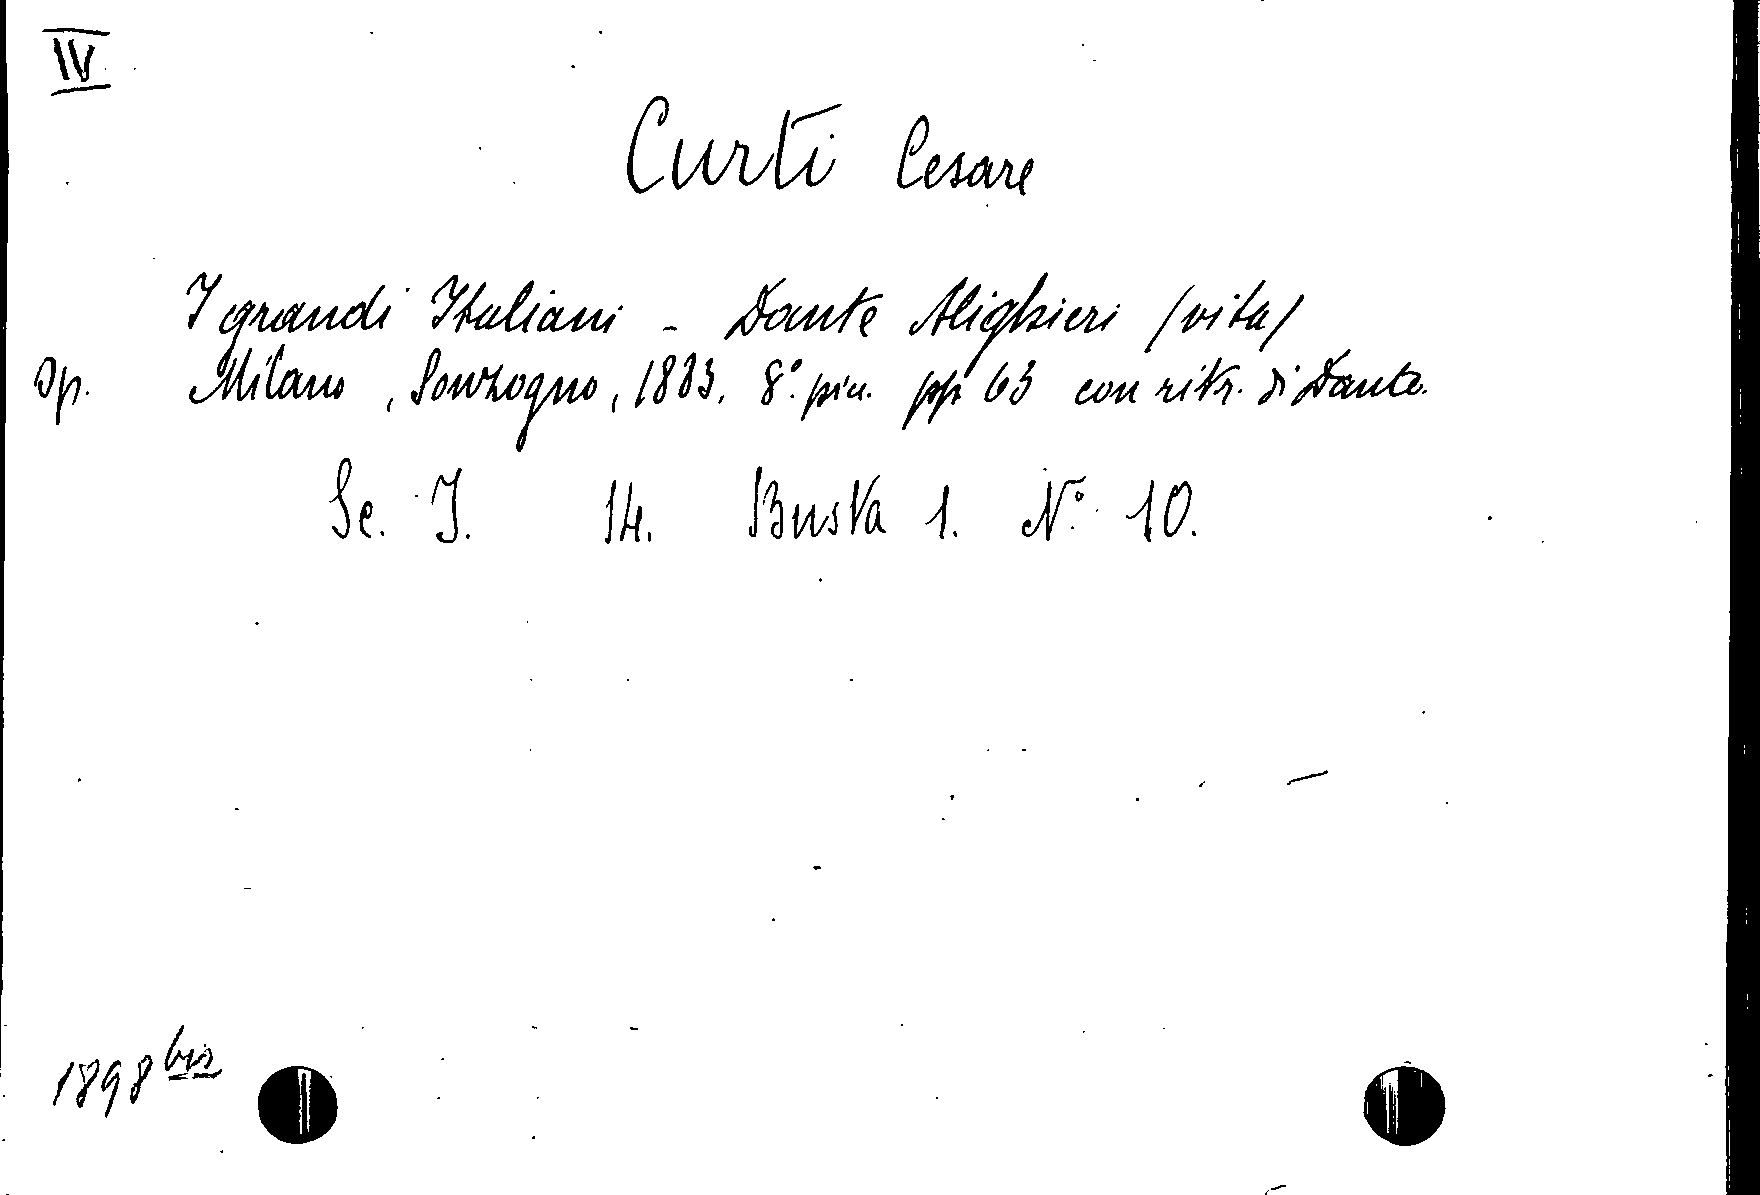 IV
Curti Cesare
I grandi Italiani - Dante Alighieri (vita)
Op. Milano, Sonzogno, 1883. 8.° picc. pp 63 con ritr. di Dante.
Sc. I. 14. Busta 1. N.° 10.
1898 bis